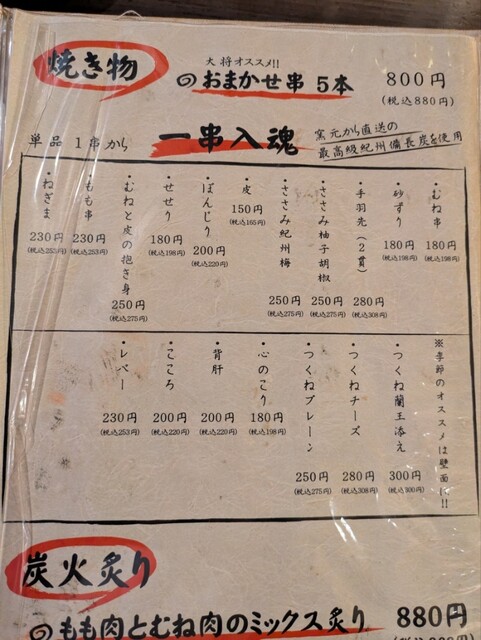 焼き物
大将オススメ!!
のおまかせ串 5本
800円
(税込880円)
単品 1串から
一串入魂
窯元から直送の
最高級紀州備長炭を使用
・むね串
180円
(税込198円)
・砂ずり
180円
(税込198円)
・手羽先(2貫)
280円
(税込308円)
・ささみ柚子胡椒
250円
(税込275円)
・ささみ紀州梅
250円
(税込275円)
・皮
150円
(税込165円)
・ぼんじり
200円
(税込220円)
・せせり
180円
(税込198円)
・むねと皮の抱き身
250円
(税込275円)
・もも串
230円
(税込253円)
・ねぎま
230円
(税込253円)
※季節のオススメは壁面に!!
・つくね蘭王添え
300円
(税込300円)
・つくねチーズ
280円
(税込308円)
・つくねプレーン
250円
(税込275円)
・心のこり
180円
(税込198円)
・背肝
200円
(税込220円)
・こころ
200円
(税込220円)
・レバー
230円
(税込253円)
炭火炙り
のもも肉とむね肉のミックス炙り
880円